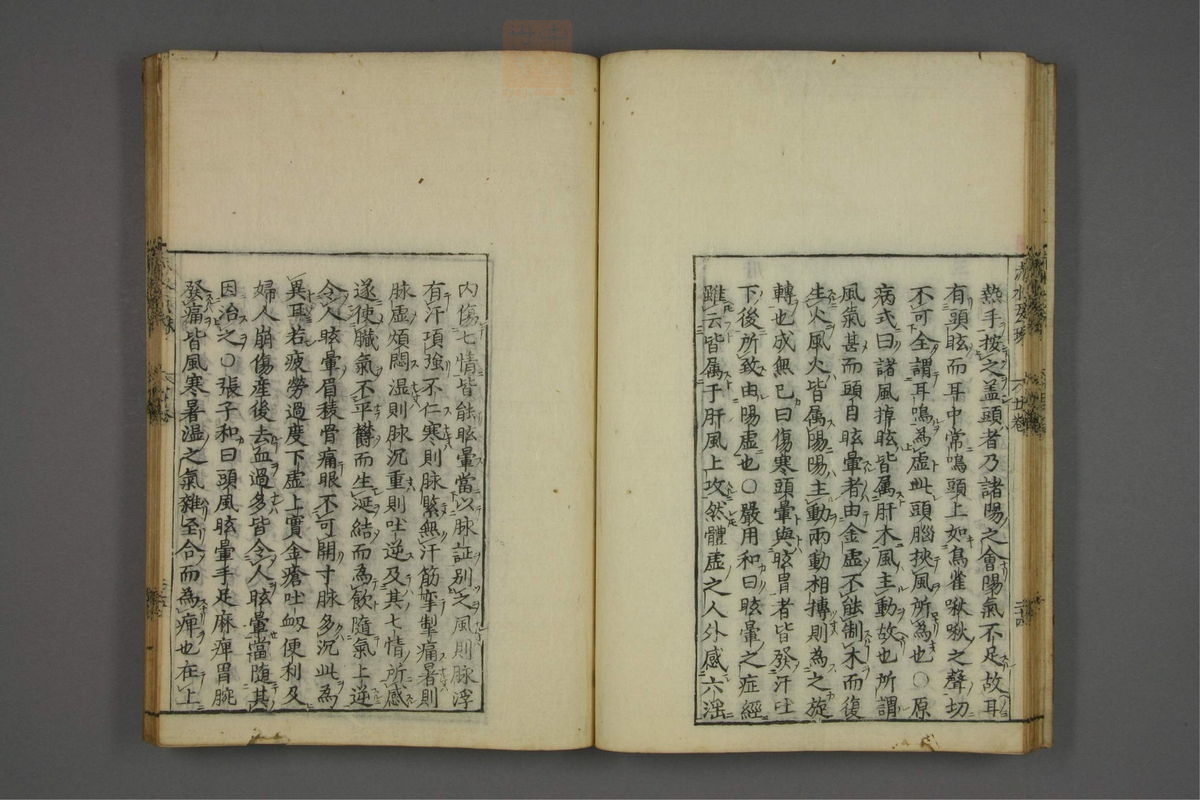 熱手按之盖頭者乃諸陽之會陽氣不足故耳
有頭眩而耳中常鳴頭上如鳥雀啾啾之聲切
不可全謂耳鳴為虛此頭腦挾風所為也○原
病式曰諸風掉眩皆属肝木風主動故也所謂
風氣甚而頭目眩暈者由金虛不能制木而復
生火風火皆属陽陽主動兩動相摶則為之旋
轉也成無已曰傷寒頭暈與眩冒者皆發汗吐
下後所致由陽虛也○嚴用和曰眩暈之症經
雖云皆属于肝風上攻然體虛之人外感六淫
内傷七情皆能眩暈當以脉証别之風則脉浮
有汗項強不仁寒則脉緊無汗筋攣掣痛暑則
脉虛煩悶湿則脉沉重則吐逆及其七情所感
遂使臓氣不平欝而生涎結而為飲隨氣上逆
令人眩暈眉稜骨痛眼不可開寸脉多沉此為
異耳若疲勞過度下虛上實金瘡吐衂便利及
婦人崩傷産後去血過多皆令人眩暈當随其
因治之○張子和曰頭風眩暈手足麻痺胃脘
發痛皆風寒暑湿之氣雜至合而為痺也在上